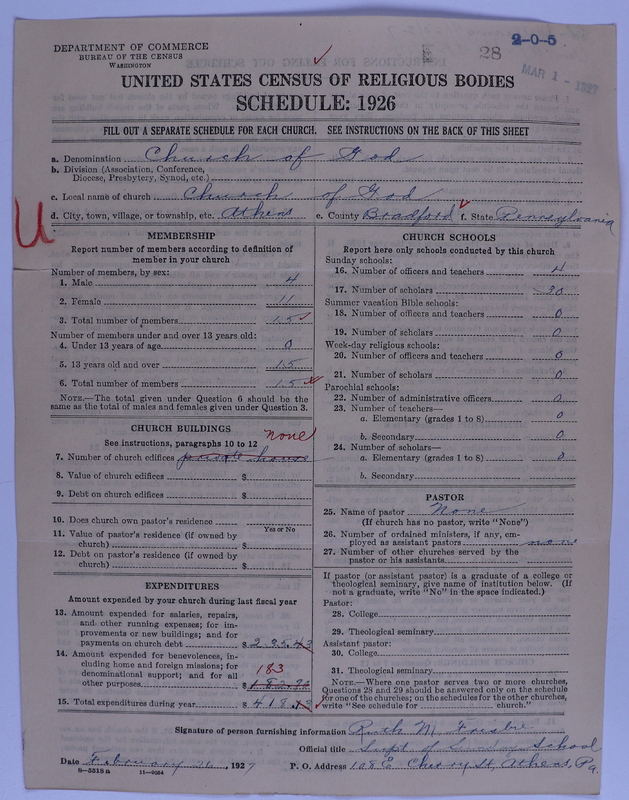 DEPARTMENT OF COMMERCE
BUREAU OF THE CENSUS
WASHINGTON
28
2-0-5
MAR 1 - 1927
UNITED STATES CENSUS OF RELIGIOUS BODIES
SCHEDULE: 1926
FILL OUT A SEPARATE SCHEDULE FOR EACH CHURCH. SEE INSTRUCTIONS ON THE BACK OF THIS SHEET
a. Denomination Church of God
b. Division (Association, Conference, Diocese, Presbytery, Synod, etc.)
c. Local name of church Church of God
d. City, town, village, or township, etc. Athens e. County Bradford f. State Pennsylvania
U
MEMBERSHIP
Report number of members according to definition of member in your church
Number of members, by sex:
1. Male 4
2. Female 11
3. Total number of members 15
Number of members under and over 13 years old:
4. Under 13 years of age 0
5. 13 years old and over 15
6. Total number of members 15
NOTE.—The total given under Question 6 should be the same as the total of males and females given under Question 3.
CHURCH BUILDINGS
See instructions, paragraphs 10 to 12
none
7. Number of church edifices private house
8. Value of church edifices $
9. Debt on church edifices $
10. Does church own pastor's residence
Yes or No
11. Value of pastor's residence (if owned by church) $
12. Debt on pastor's residence (if owned by church) $
EXPENDITURES
Amount expended by your church during last fiscal year
13. Amount expended for salaries, repairs, and other running expenses; for improvements or new buildings; and for payments on church debt $ 235.43
14. Amount expended for benevolences, including home and foreign missions; for denominational support; and for all other purposes $ 182.72
183
15. Total expenditures during year $ 418.15
CHURCH SCHOOLS
Report here only schools conducted by this church
Sunday schools:
16. Number of officers and teachers 4
17. Number of scholars 30
Summer vacation Bible schools:
18. Number of officers and teachers 0
19. Number of scholars 0
Week-day religious schools:
20. Number of officers and teachers 0
21. Number of scholars 0
Parochial schools:
22. Number of administrative officers 0
23. Number of teachers—
a. Elementary (grades 1 to 8) 0
b. Secondary 0
24. Number of scholars—
a. Elementary (grades 1 to 8) 0
b. Secondary
PASTOR
25. Name of pastor None
(If church has no pastor, write "None")
26. Number of ordained ministers, if any, employed as assistant pastors none
27. Number of other churches served by the pastor or his assistants
If pastor (or assistant pastor) is a graduate of a college or theological seminary, give name of institution below. (If not a graduate, write "No" in the space indicated.)
Pastor:
28. College
29. Theological seminary
Assistant pastor:
30. College
31. Theological seminary
NOTE.—Where one pastor serves two or more churches, Questions 28 and 29 should be answered only on the schedule for one of the churches; on the schedules for the other churches, write "See schedule for ____ church."
Signature of person furnishing information Ruth M.
Official title Supt of Sunday School
Date February 26, 1927
P. O. Address 108 E Cherry St, Athens, Pa.
8—5518a 11—9054